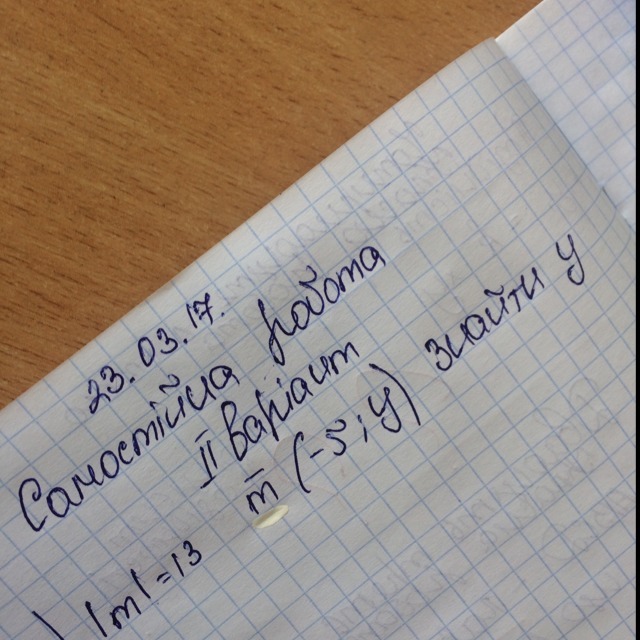 23.03.17.
Самостійна робота
II варіант
|m|=13 m̅ (-5; y) знайти y